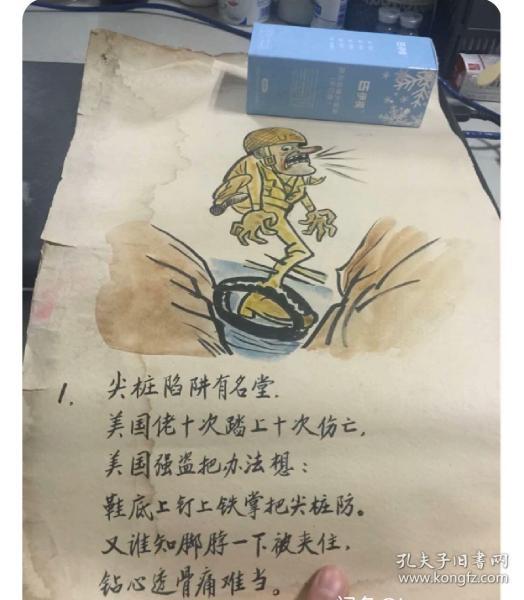 1. 尖桩陷阱有名堂.
美国佬十次踏上十次伤亡,
美国强盗把办法想:
鞋底上钉上铁掌把尖桩防。
又谁知脚脖一下被夹住,
钻心透骨痛难当。
孔夫子旧书网
www.kongfz.com